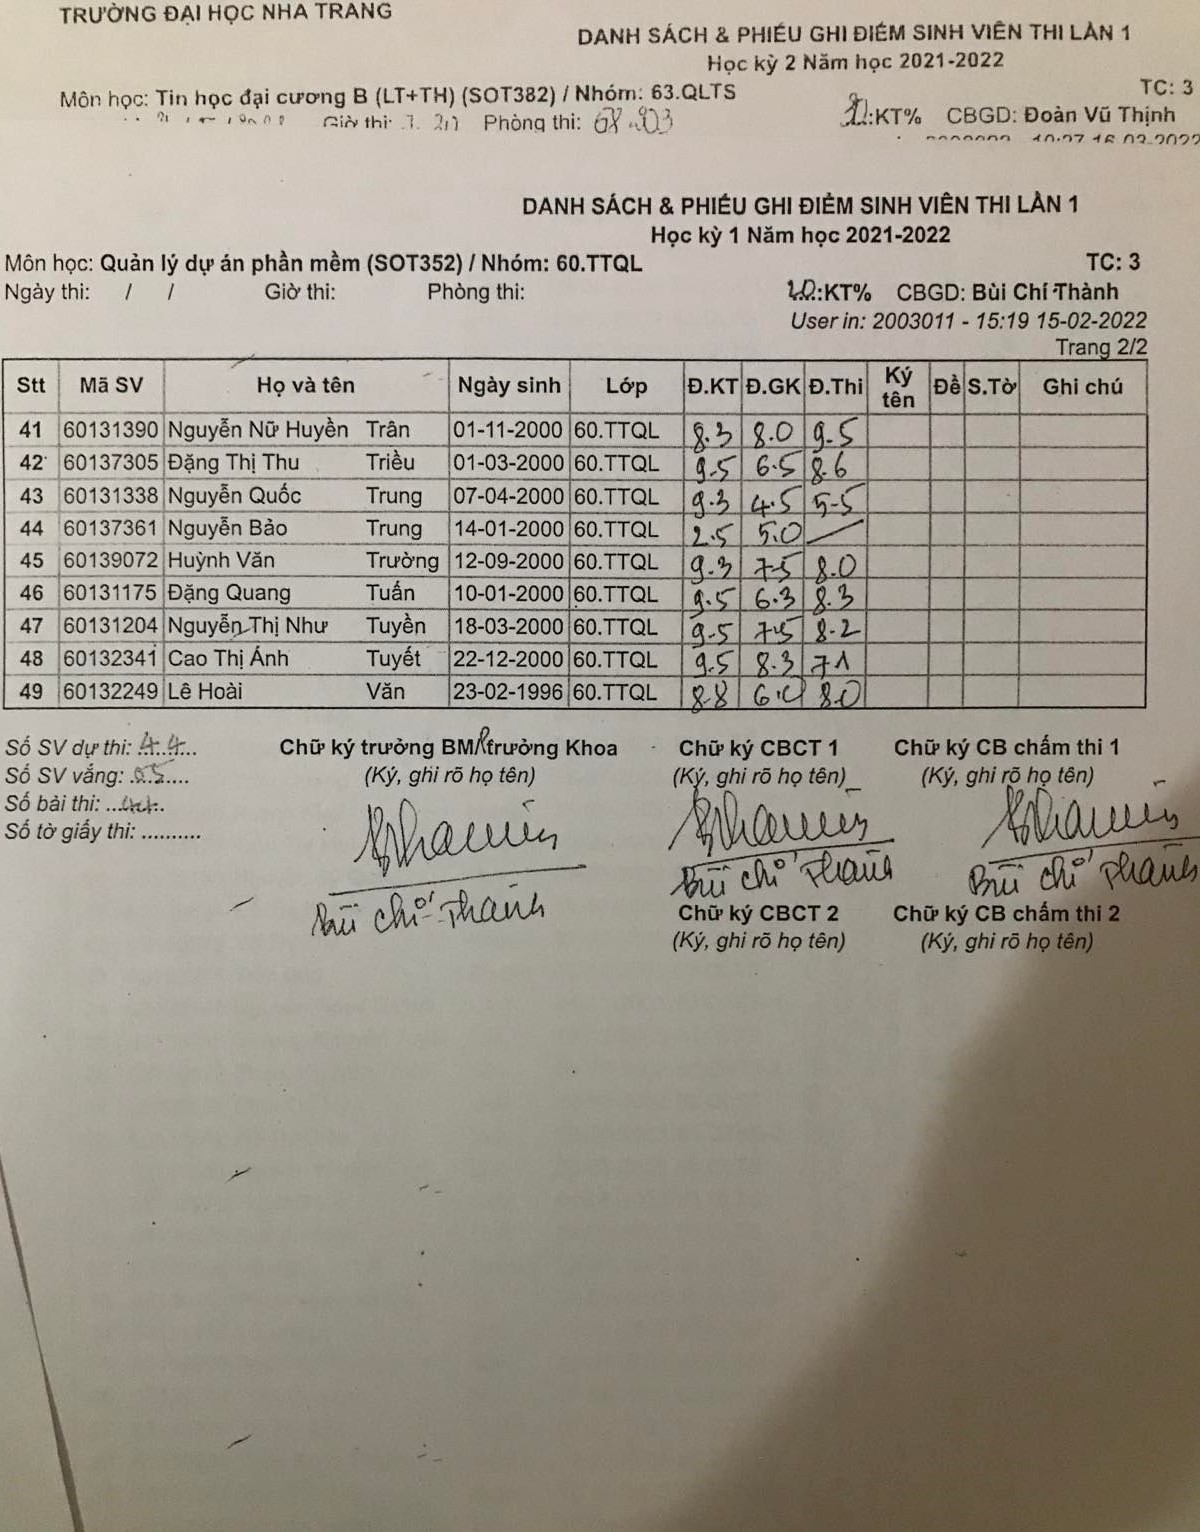 TRƯỜNG ĐẠI HỌC NHA TRANG
DANH SÁCH & PHIẾU GHI ĐIỂM SINH VIÊN THI LẦN 1
Học kỳ 2 Năm học 2021-2022
TC: 3
Môn học: Tin học đại cương B (LT+TH) (SOT382) / Nhóm: 63.QLTS
:KT% CBGD: Đoàn Vũ Thịnh
Giờ thi: Phòng thi:
10:27 16-02-2022
DANH SÁCH & PHIẾU GHI ĐIỂM SINH VIÊN THI LẦN 1
Học kỳ 1 Năm học 2021-2022
Môn học: Quản lý dự án phần mềm (SOT352) / Nhóm: 60.TTQL TC: 3
Ngày thi: / / Giờ thi: Phòng thi: 20:KT% CBGD: Bùi Chí Thành
User in: 2003011 - 15:19 15-02-2022
Trang 2/2
Stt Mã SV Họ và tên Ngày sinh Lớp Đ.KT Đ.GK Đ.Thi Ký tên Đề S.Tờ Ghi chú
41 60131390 Nguyễn Nữ Huyền Trân 01-11-2000 60.TTQL 8.3 8.0 9.5
42 60137305 Đặng Thị Thu Triều 01-03-2000 60.TTQL 9.5 6.5 8.6
43 60131338 Nguyễn Quốc Trung 07-04-2000 60.TTQL 9.3 4.5 5.5
44 60137361 Nguyễn Bảo Trung 14-01-2000 60.TTQL 2.5 5.0
45 60139072 Huỳnh Văn Trường 12-09-2000 60.TTQL 9.3 7.5 8.0
46 60131175 Đặng Quang Tuấn 10-01-2000 60.TTQL 9.5 6.3 8.3
47 60131204 Nguyễn Thị Như Tuyền 18-03-2000 60.TTQL 9.5 7.5 8.2
48 60132341 Cao Thị Ánh Tuyết 22-12-2000 60.TTQL 9.5 8.3 7.1
49 60132249 Lê Hoài Văn 23-02-1996 60.TTQL 8.8 6.0 8.0
Số SV dự thi: 44 Chữ ký trưởng BM/trưởng Khoa Chữ ký CBCT 1 Chữ ký CB chấm thi 1
Số SV vắng: 05 (Ký, ghi rõ họ tên) (Ký, ghi rõ họ tên) (Ký, ghi rõ họ tên)
Số bài thi: 44
Số tờ giấy thi: ..........
Bùi Chí Thành Bùi Chí Thành Bùi Chí Thành
Chữ ký CBCT 2 Chữ ký CB chấm thi 2
(Ký, ghi rõ họ tên) (Ký, ghi rõ họ tên)